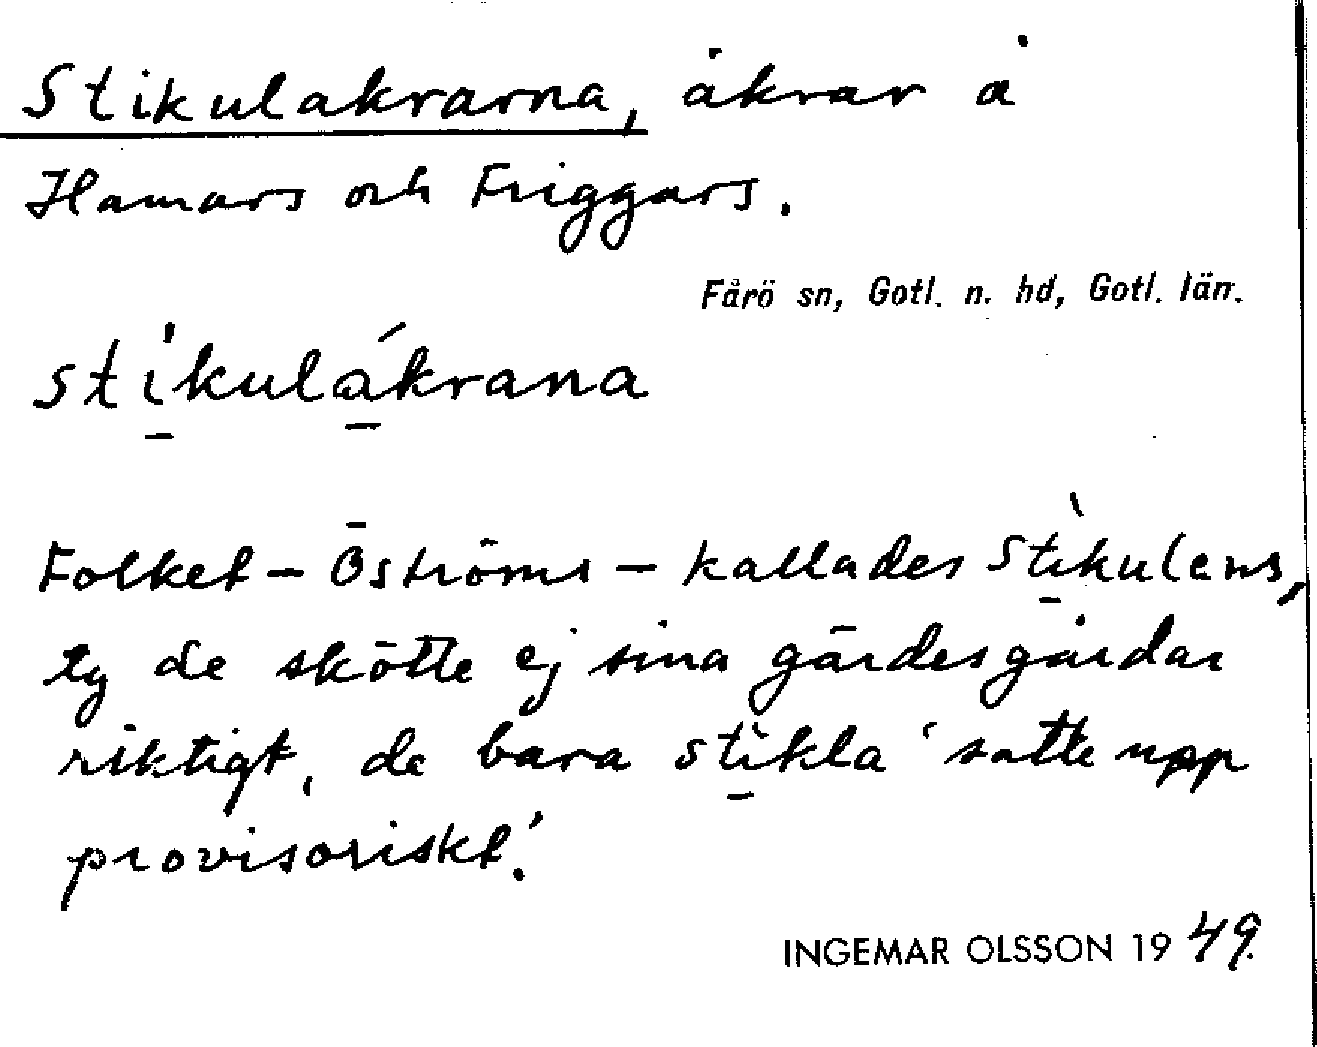 Stikulakrarna, åkrar å
Hamars och Friggars.
Fårö sn, Gotl. n. hd, Gotl. län.
sti̱̍kulá̱krana
Folket – Öströms – kallades Stì̱kulens,
ty de skötte ej sina gärdesgårdar
riktigt, de bara stì̱kla 'satte upp
provisoriskt'.
INGEMAR OLSSON 1949.